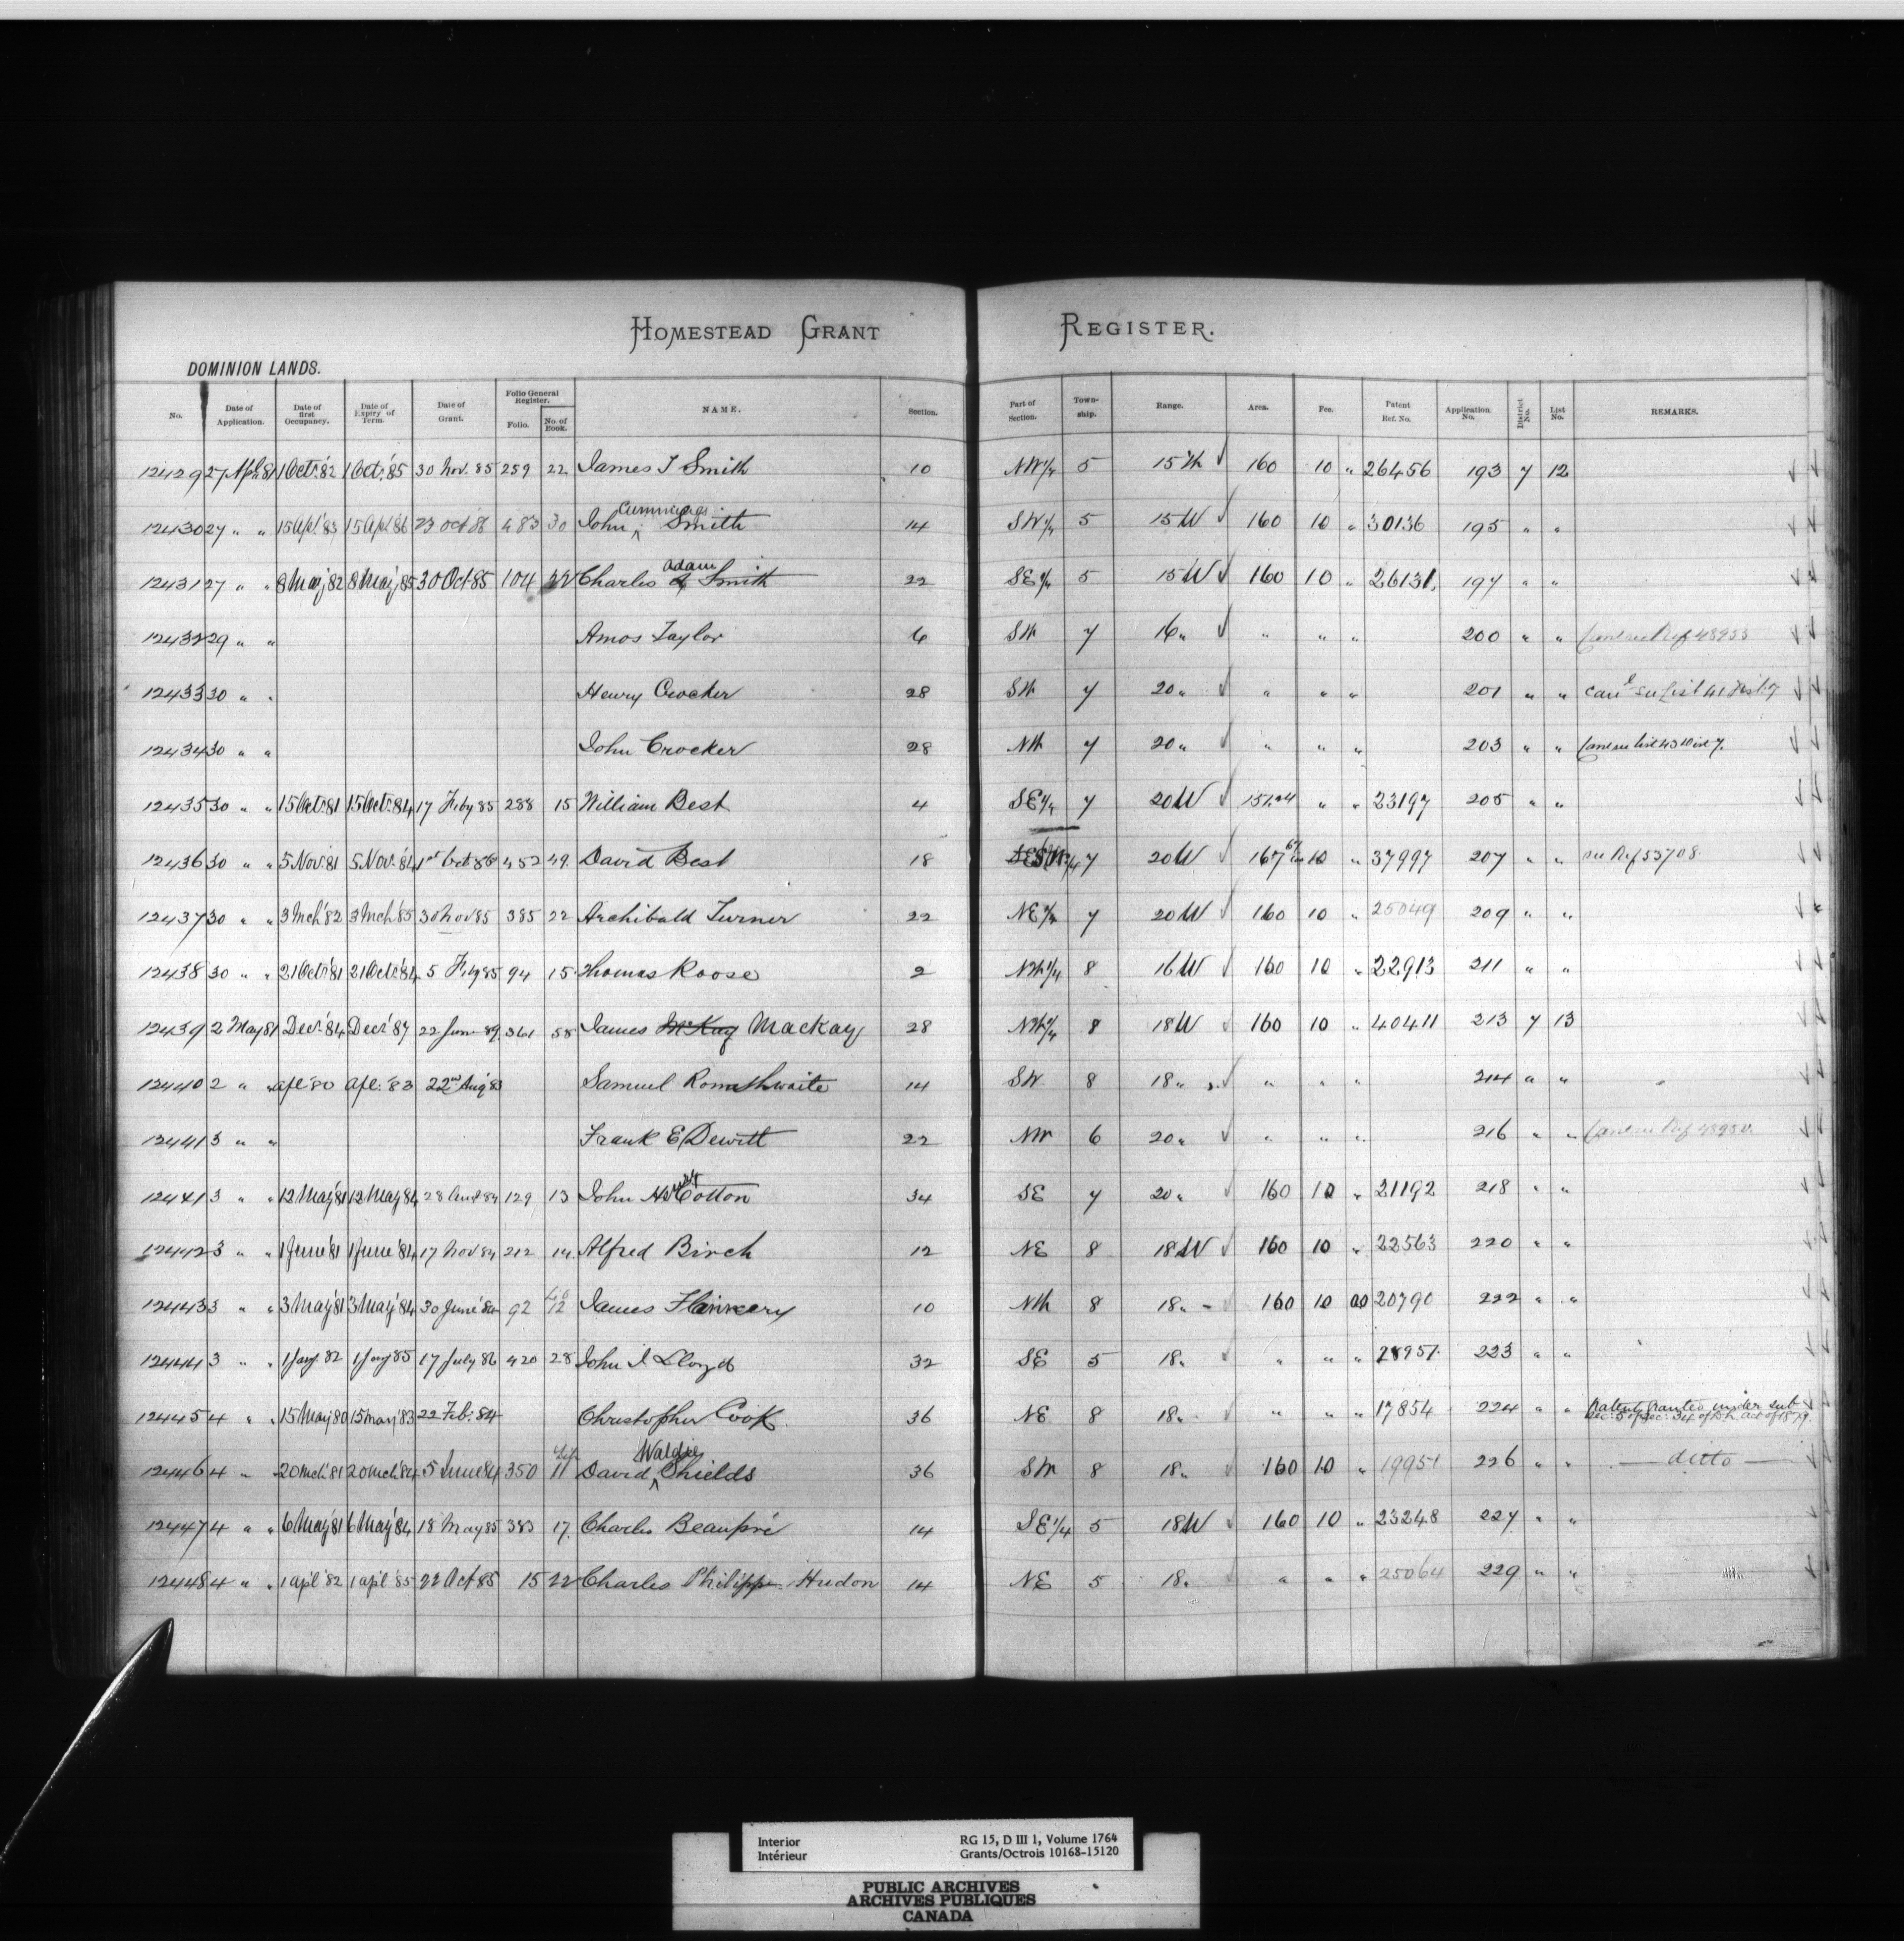 HOMESTEAD GRANT REGISTER.
DOMINION LANDS.
No. Date of Application. Date of first Occupancy. Date of Expiry of Term. Date of Grant. Folio General Register. Folio. No. of Book. NAME. Section. Part of Section. Township. Range. Area. Fee. Patent Ref. No. Application No. District No. List No. REMARKS.
12429 27 Apl 81 1 Oct: '82 1 Oct: '85 30 Nov. 85 259 22 James T Smith 10 NW 1/4 5 15 W 160 10 " 26456 193 7 12
12430 27 " " 15 Apl '83 15 Apl '86 23 Oct 86 483 30 John Cummings Smith 14 SW 1/4 5 15 W 160 10 " 30136 195 " "
12431 27 " " 8 May '82 8 May '85 30 Oct 85 104 22 Charles A Adam Smith 22 SE 1/4 5 15 W 160 10 " 26131 197 " "
12432 29 " " Amos Taylor 6 SW 7 16 " " " " 200 " " Canc see Ref 48953
12433 30 " " Henry Crocker 28 SW 7 20 " " " " 201 " " Canl see List 41 Dist. 7
12434 30 " " John Crocker 28 NW 7 20 " " " " 203 " " Canc see List 43 Dist 7.
12435 30 " " 15 Oct: 81 15 Oct: 84 17 Feby 85 288 15 William Best 4 SE 1/4 7 20 W 151.24 " " 23197 205 " "
12436 30 " " 5 Nov 81 5 Nov. 84 1st Oct 86 452 49. David Best 18 SW 1/4 7 20 W 167 10 " 37997 207 " " see Ref 53708.
12437 30 " " 3 Mch '82 3 Mch '85 30 Nov 85 385 22 Archibald Turner 22 NE 1/4 7 20 W 160 10 " 25049 209 " "
12438 30 " " 21 Oct: '81 21 Oct: '84 5 Feby 85 94 15 Thomas Roose 2 NW 1/4 8 16 W 160 10 " 22913 211 " "
12439 2 May 81 Decr '84 Decr '87 22 June 89 361 58 James McKay Mackay 28 NW 1/4 8 18 W 160 10 " 40411 213 7 13
12440 2 " " Apl: '80 Apl: '83 22nd Aug '83 Samuel Rowsthwaite 14 SW 8 18 " " " " 214 " "
12441 3 " " Frank E Dewitt 22 NW 6 20 " " " " 216 " " Canc see Ref 48950.
12441 3 " " 12 May '81 12 May 84 28 Aug 84 129 13 John Cotton 34 SE 7 20 " 160 10 " 21192 218 " "
12442 3 " " 1 June '81 1 June '84 17 Nov 84 212 14. Alfred Birch 12 NE 8 18 W 160 10 " 22563 220 " "
12443 3 " " 3 May '81 3 May '84 30 June '84 92 12 James 10 NW 8 18 " 160 10 00 20790 222 " "
12444 3 " " 1 Jany. 82 1 Jany 85 17 July 86 420 28 John I Lloyd 32 SE 5 18 " " " " 28951 223 " "
12445 4 " " 15 May 80 15 May '83 22 Feb: 84 Christopher Cook 36 NE 8 18 " " " " 17854 224 " " Patent granted under sub sec: 5 of sec: 34 of D.L. act of 1879.
12446 4 " " 20 Mch '81 20 Mch '84 5 June 84 350 11 David Waldie Shields 36 SW 8 18 " 160 10 " 19951 226 " " — ditto —
12447 4 " " 6 May '81 6 May '84 18 May 85 383 17. Charles Beaupré 14 SE 1/4 5 18 W 160 10 " 23248 227 " "
12448 4 " " 1 Apl '82 1 Apl '85 22 Oct 85 15 22 Charles Philippe Hudon 14 NE 5 18 " " " " 25064 229 " "
Interior RG 15, D III 1, Volume 1764
Intérieur Grants/Octrois 10168-15120
PUBLIC ARCHIVES
ARCHIVES PUBLIQUES
CANADA